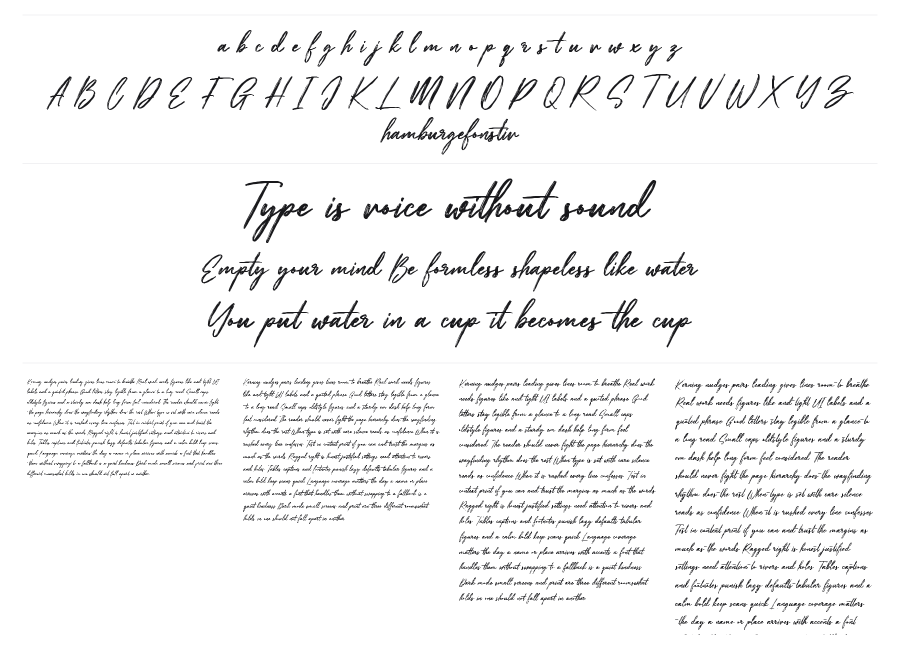 a b c d e f g h i j k l m n o p q r s t u v w x y z
A B C D E F G H I J K L M N O P Q R S T U V W X Y Z
hamburgefonstiv
Type is voice without sound
Empty your mind Be formless shapeless like water
You put water in a cup it becomes the cup
Kerning nudges pairs leading gives lines room to breathe Real work needs figures like and tight UI
labels and a quoted phrase Good letters stay legible from a glance to a long read Small caps
oldstyle figures and a sturdy em dash help long form feel considered The reader should never fight
the page hierarchy does the wayfinding rhythm does the rest When type is set with care silence reads
as confidence When it is rushed every line confesses Test in context print if you can and trust the
margins as much as the words Ragged right is honest justified settings need attention to rivers and
holes Tables captions and footnotes punish lazy defaults tabular figures and a calm bold keep scans
quick Language coverage matters the day a name or place arrives with accents a font that handles
them without swapping to a fallback is a quiet kindness Dark mode small screens and print are three
different rooms what holds in one should not fall apart in another
Kerning nudges pairs leading gives lines room to breathe Real work needs figures
like and tight UI labels and a quoted phrase Good letters stay legible from a glance
to a long read Small caps oldstyle figures and a sturdy em dash help long form
feel considered The reader should never fight the page hierarchy does the wayfinding
rhythm does the rest When type is set with care silence reads as confidence When it is
rushed every line confesses Test in context print if you can and trust the margins as
much as the words Ragged right is honest justified settings need attention to rivers
and holes Tables captions and footnotes punish lazy defaults tabular figures and a
calm bold keep scans quick Language coverage matters the day a name or place
arrives with accents a font that handles them without swapping to a fallback is a
quiet kindness Dark mode small screens and print are three different rooms what
holds in one should not fall apart in another
Kerning nudges pairs leading gives lines room to breathe Real work
needs figures like and tight UI labels and a quoted phrase Good
letters stay legible from a glance to a long read Small caps
oldstyle figures and a sturdy em dash help long form feel
considered The reader should never fight the page hierarchy does the
wayfinding rhythm does the rest When type is set with care silence
reads as confidence When it is rushed every line confesses Test in
context print if you can and trust the margins as much as the words
Ragged right is honest justified settings need attention to rivers and
holes Tables captions and footnotes punish lazy defaults tabular
figures and a calm bold keep scans quick Language coverage
matters the day a name or place arrives with accents a font that
handles them without swapping to a fallback is a quiet kindness
Dark mode small screens and print are three different rooms what
holds in one should not fall apart in another
Kerning nudges pairs leading gives lines room to breathe
Real work needs figures like and tight UI labels and a
quoted phrase Good letters stay legible from a glance to
a long read Small caps oldstyle figures and a sturdy
em dash help long form feel considered The reader
should never fight the page hierarchy does the wayfinding
rhythm does the rest When type is set with care silence
reads as confidence When it is rushed every line confesses
Test in context print if you can and trust the margins as
much as the words Ragged right is honest justified
settings need attention to rivers and holes Tables captions
and footnotes punish lazy defaults tabular figures and a
calm bold keep scans quick Language coverage matters
the day a name or place arrives with accents a font